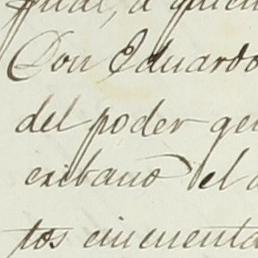 Don Eduardo
del poder gen
cribano el d
tos cincuenta